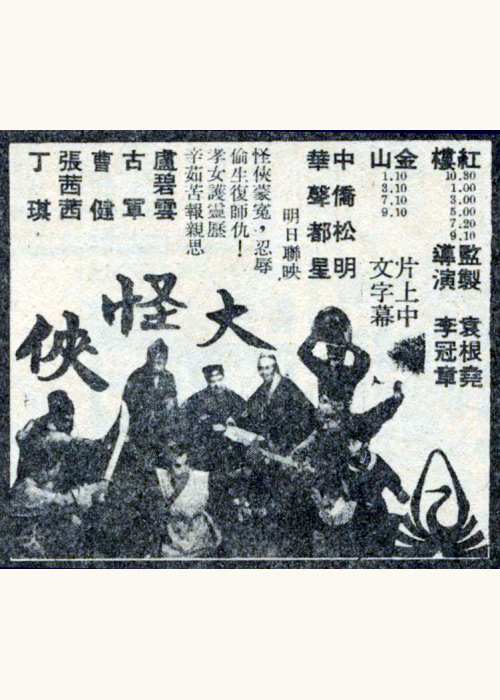 紅樓
10.30
1.00
3.00
5.00
7.20
9.10
監製 袁根堯
導演 李冠章
金山
1.10
3.10
7.10
9.10
片上中
文字幕
中僑松明
華聲都星
明日聯映
怪俠蒙冤,忍辱
偷生復師仇!
孝女護靈歷
辛茹苦報親思
盧碧雲
古軍
曹健
張茜茜
丁琪
大怪俠